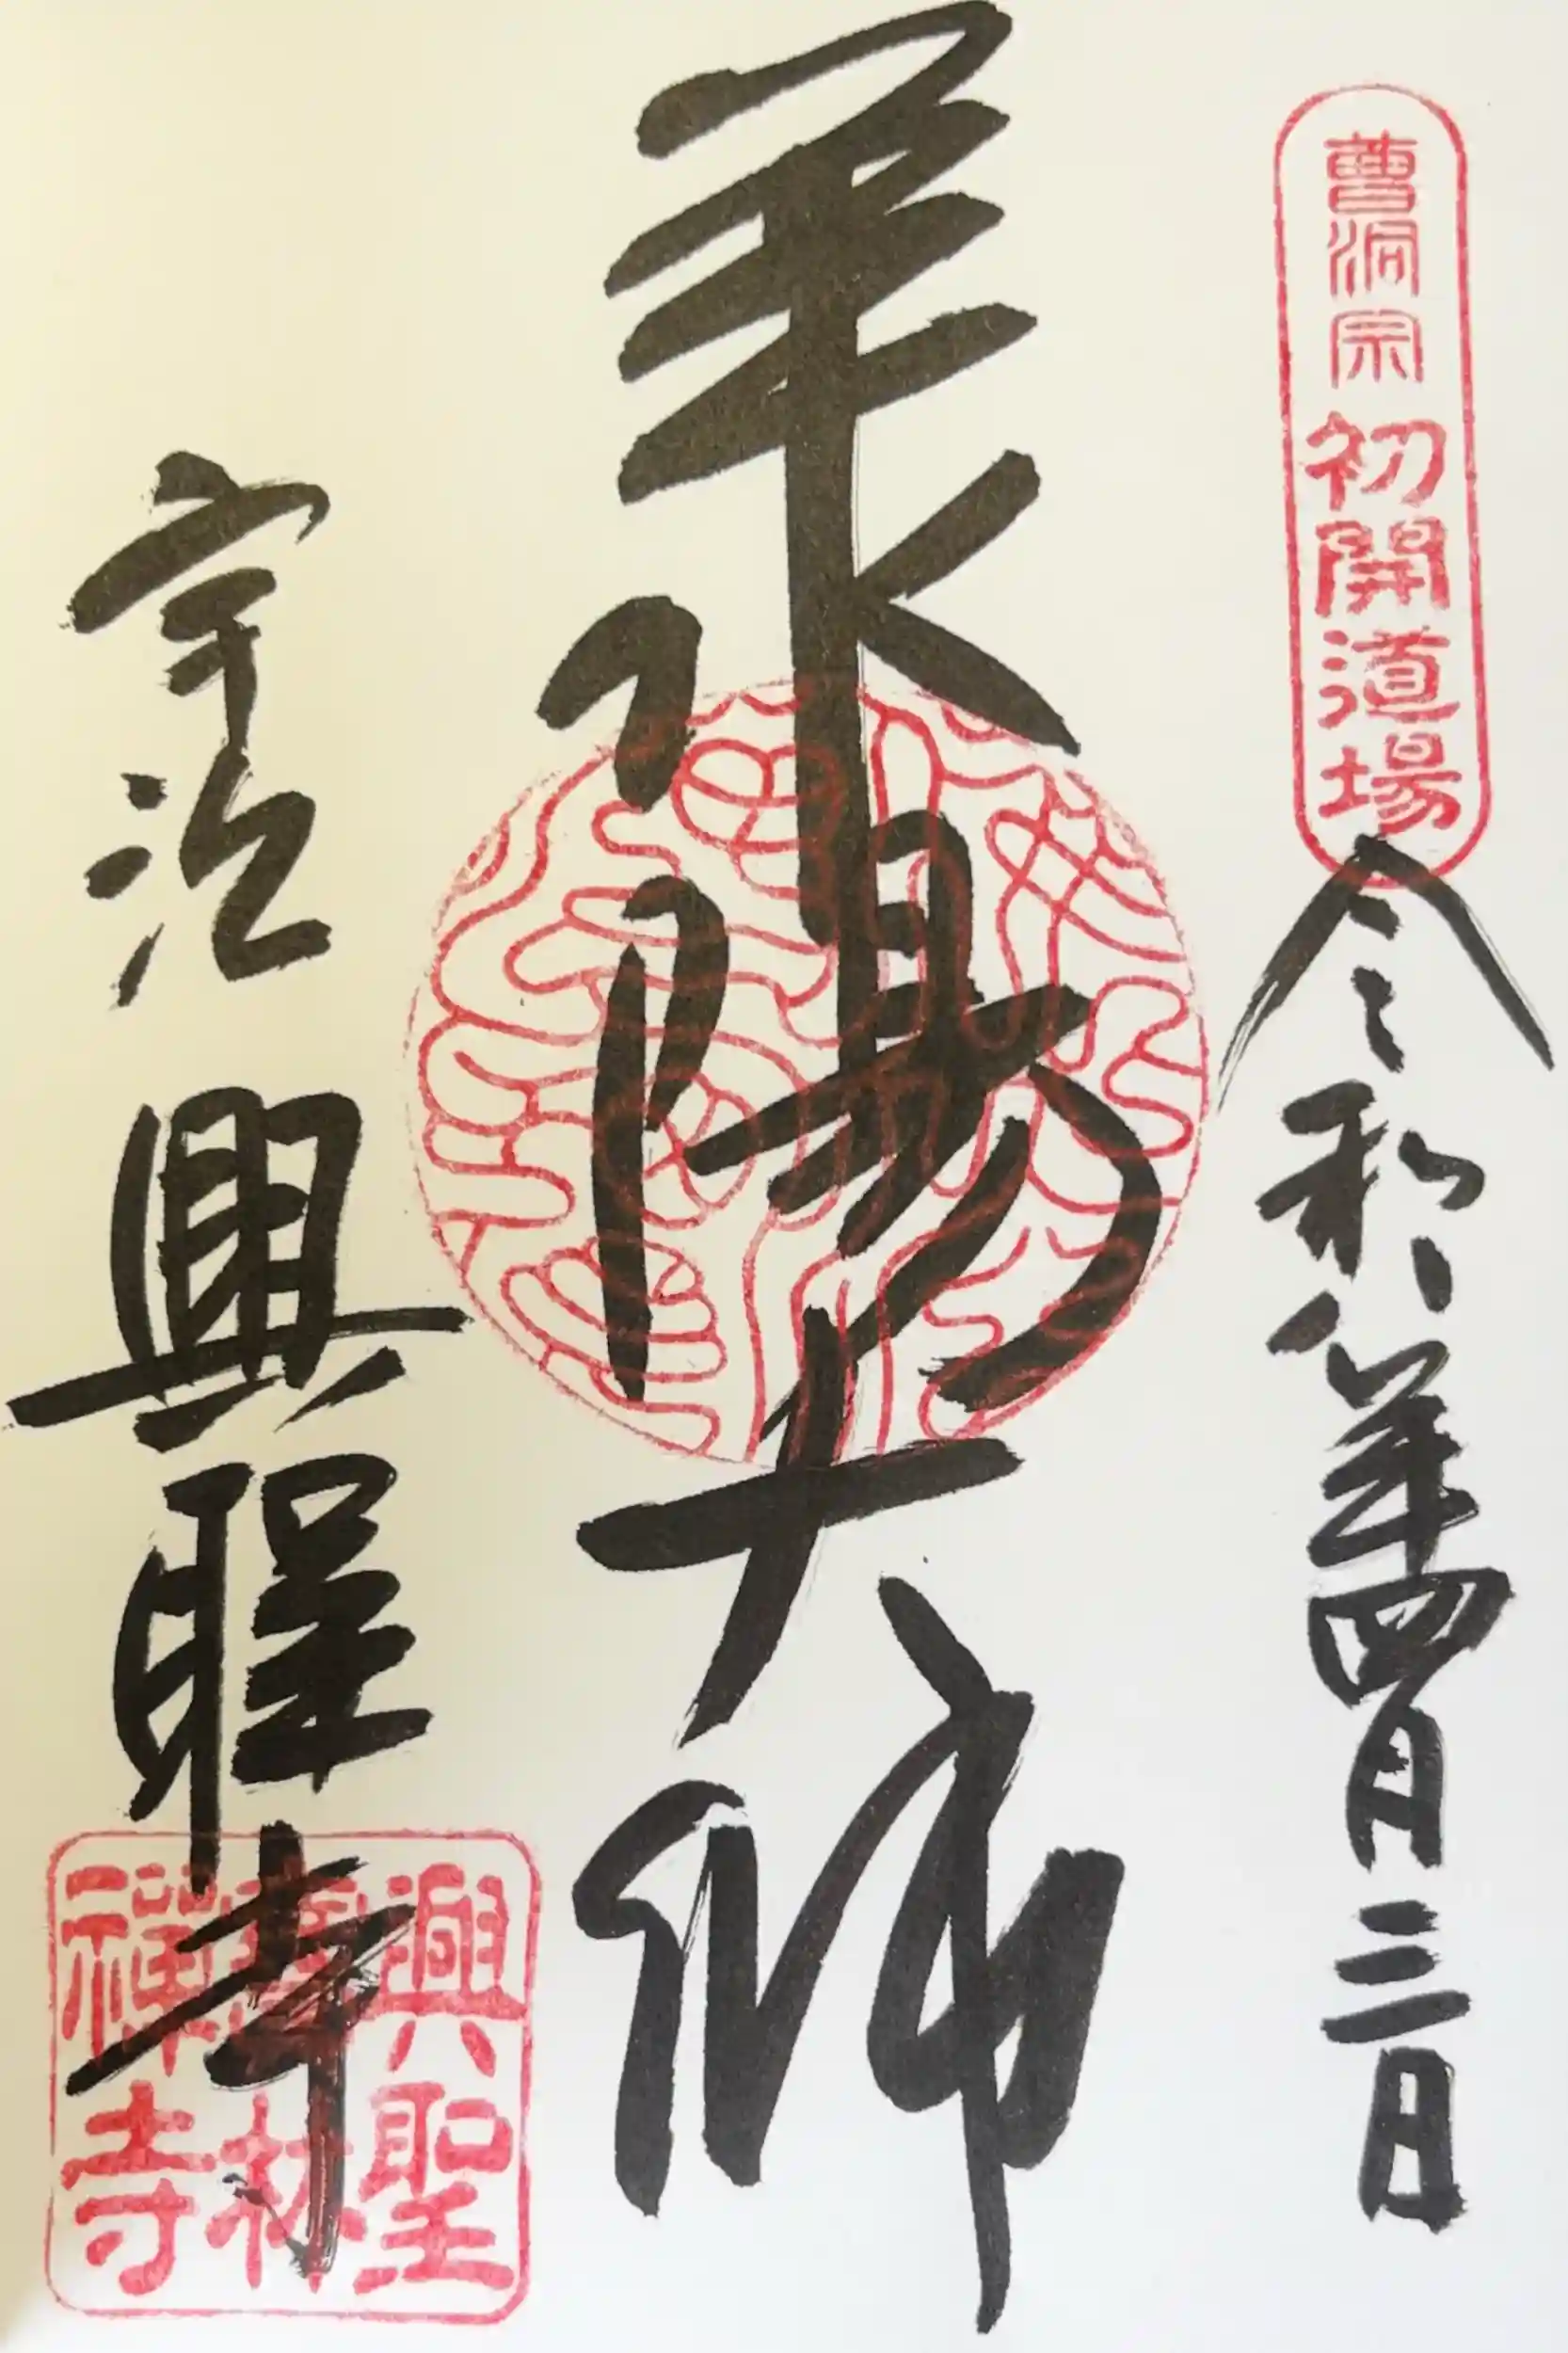 曹洞宗 初開道場
令和八年四月三日
承陽大師
宇治 興聖寺
興聖
寶林
禪寺